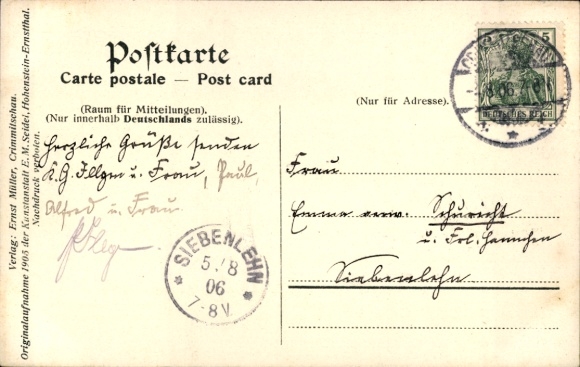 Postkarte
Carte postale — Post card
(Raum für Mitteilungen).
(Nur innerhalb Deutschlands zulässig).
(Nur für Adresse).
Herzliche Grüße senden
K. G. Illgen u. Frau, Paul,
Alfred u. Frau
Frau
Emma verw. Schuricht
u. Frl. Hannchen
Siebenlehn
SIEBENLEHN
5/8
06
7-8V.
5
DEUTSCHES REICH
8 06
Verlag: Ernst Müller, Crimmitschau.
Originalaufnahme 1905 der Kunstanstalt E. M. Seidel, Hohenstein-Ernstthal.
Nachdruck verboten.